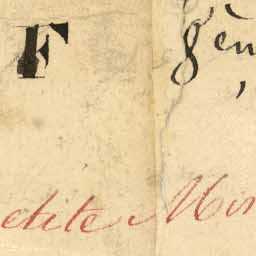 F gèn
etite Mis